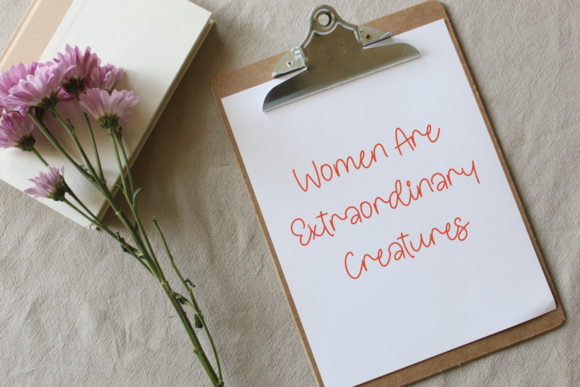 Women Are
Extraordinary
Creatures